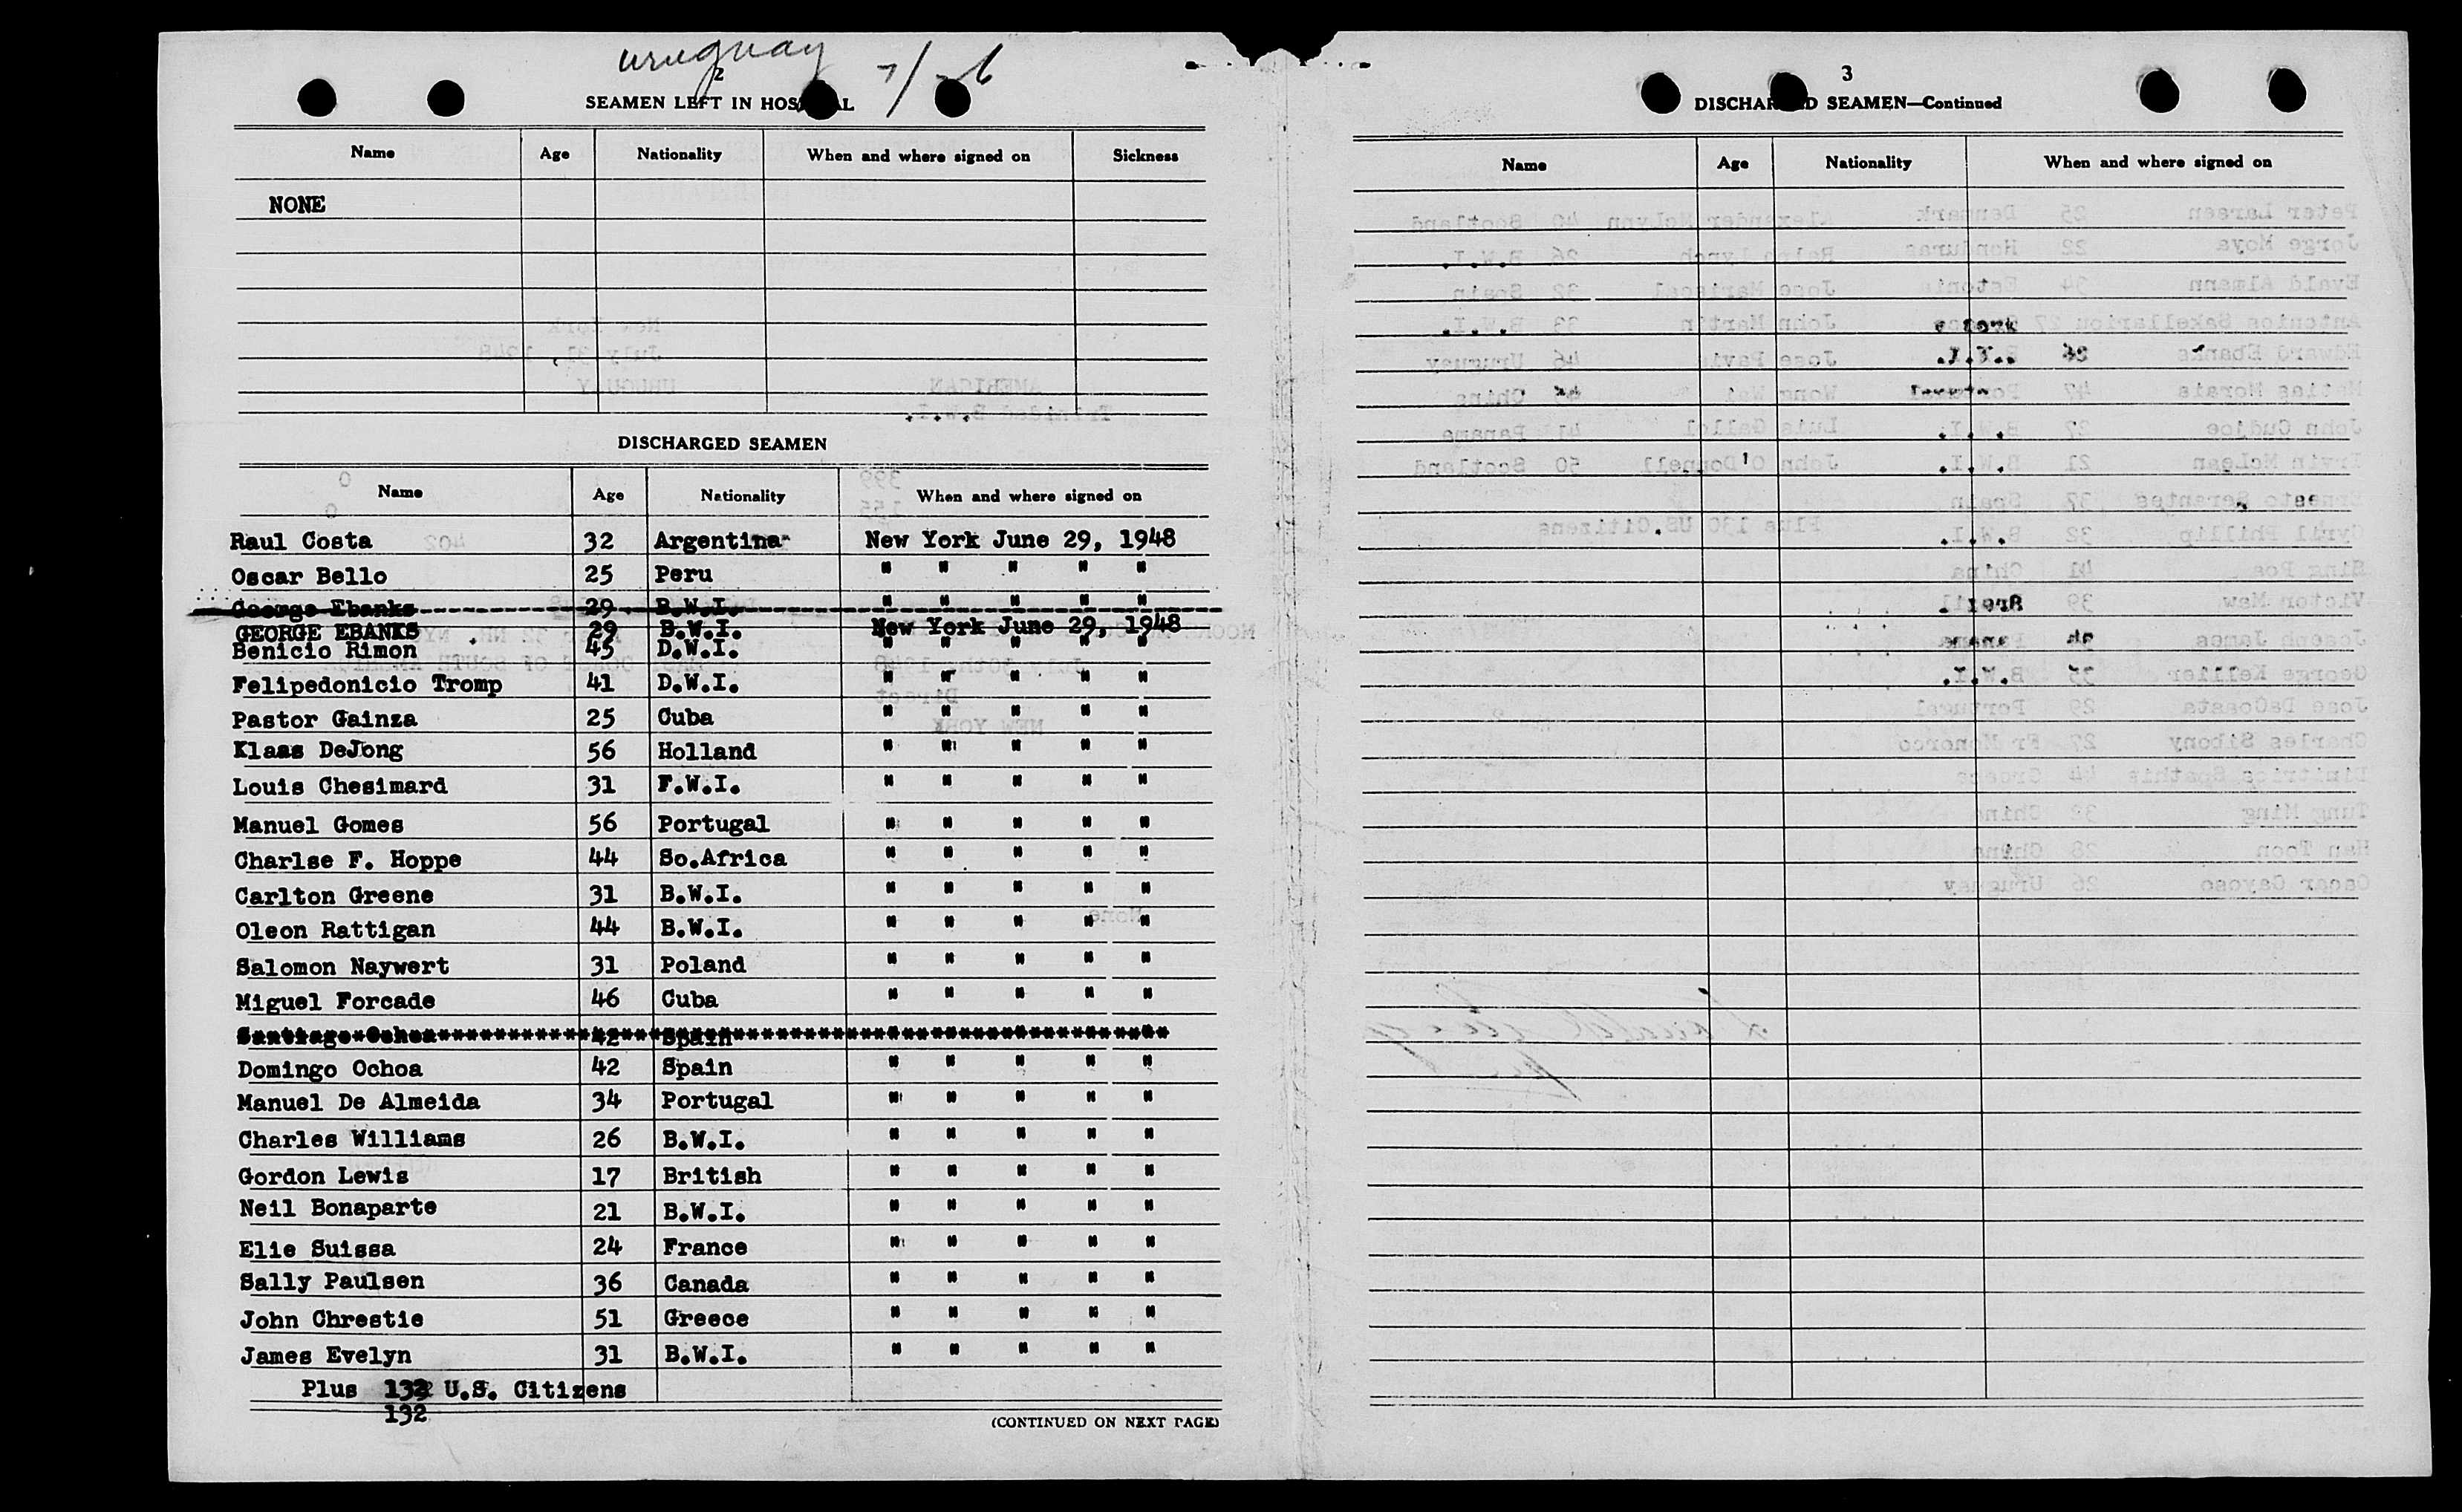 uruguay
2
SEAMEN LEFT IN HOSPITAL
Name Age Nationality When and where signed on Sickness
NONE
DISCHARGED SEAMEN
Name Age Nationality When and where signed on
Raul Costa 32 Argentina New York June 29, 1948
Oscar Bello 25 Peru " " " " "
George Ebanks 29 B.W.I. " " " " "
GEORGE EBANKS 29 B.W.I. New York June 29, 1948
Benicio Rimon 45 D.W.I. " " " " "
Felipedonicio Tromp 41 D.W.I. " " " " "
Pastor Gainza 25 Cuba " " " " "
Klaas DeJong 56 Holland " " " " "
Louis Chesimard 31 F.W.I. " " " " "
Manuel Gomes 56 Portugal " " " " "
Charlse F. Hoppe 44 So.Africa " " " " "
Carlton Greene 31 B.W.I. " " " " "
Oleon Rattigan 44 B.W.I. " " " " "
Salomon Naywert 31 Poland " " " " "
Miguel Forcade 46 Cuba " " " " "
Santiago Ochoa 42 Spain
Domingo Ochoa 42 Spain " " " " "
Manuel De Almeida 34 Portugal " " " " "
Charles Williams 26 B.W.I. " " " " "
Gordon Lewis 17 British " " " " "
Neil Bonaparte 21 B.W.I. " " " " "
Elie Suissa 24 France " " " " "
Sally Paulsen 36 Canada " " " " "
John Chrestie 51 Greece " " " " "
James Evelyn 31 B.W.I. " " " " "
Plus 132 U.S. Citizens
132
(CONTINUED ON NEXT PAGE)
3
DISCHARGED SEAMEN—Continued
Name Age Nationality When and where signed on